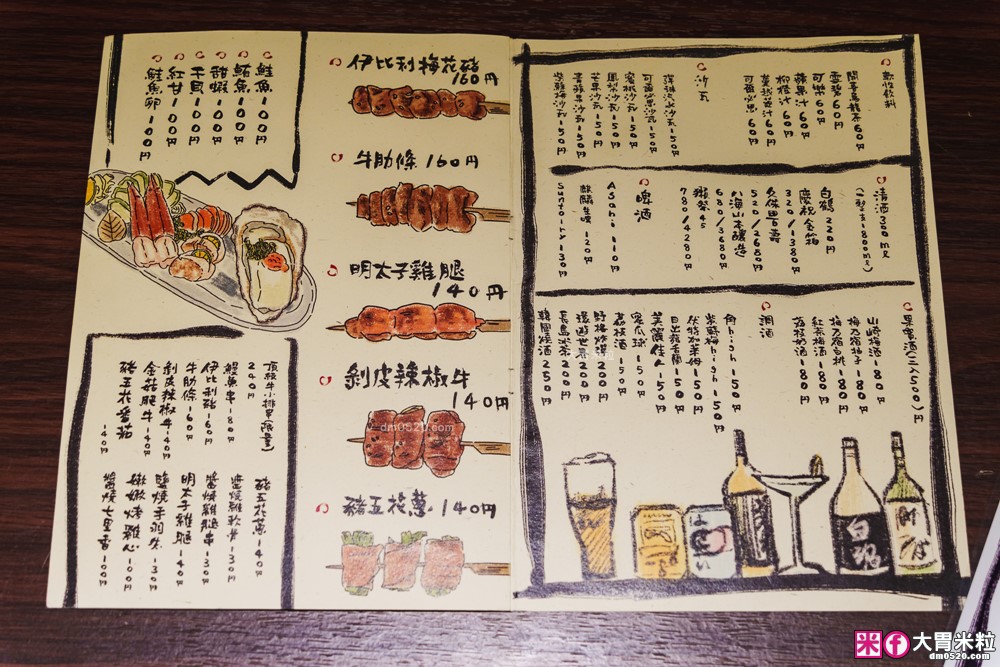 鮭魚100円
鮪魚100円
甜蝦100円
干貝100円
紅甘100円
鮭魚卵100円
伊比利梅花豬
160円
牛肋條160円
明太子雞腿
140円
剝皮辣椒牛
140円
豬五花蔥140円
頂級牛小排串(限量)
200円
鰻魚串-80円
伊比利豬-160円
牛肋條-160円
剝皮辣椒牛-140円
金菇肥牛-140円
豬五花番茄
-140円
豬五花蔥-140円
醬燒雞軟骨-130円
醬燒雞腿串-130円
明太子雞腿-140円
鹽燒手羽先-130円
嫩嫩烤雞心-100円
醬燒七里香-100円
軟性飲料
開喜烏龍茶60円
雪碧60円
可樂60円
蘋果汁60円
柳橙汁60円
蔓越莓汁60円
可爾必思60円
沙瓦
可爾必思沙瓦-150円
蜜桃沙瓦-150円
鳳梨沙瓦-150円
芒果沙瓦-150円
青蘋果沙瓦-150円
紫蘇梅沙瓦-150円
清酒300ml
(一升1800ml)
白鶴220円
慶祝金箔
320/1380円
久保田千壽
520/2680円
八海山本釀造
680/3680円
獺祭45
780/4280円
啤酒
Asahi-110円
麒麟生啤120円
Suntory-130円
果實酒(三入500)円
山崎梅酒-180円
梅乃宿柚子-180円
梅乃宿白桃-180円
紅茶梅酒-180円
荔枝奶酒-180円
調酒
角high-150円
紫蘇梅high-150円
伏特加萊姆-150円
日出龍舌蘭-150円
美麗佳人-150円
蜜瓜球-150円
荔枝酒-150円
野格炸彈200円
環遊世界200円
長島冰茶200円
韓國燒酒250円
dm0520.com
米
f
大胃米粒
dm0520.com